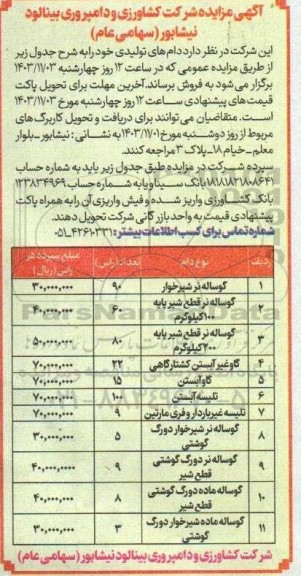 آگهی مزایده شرکت کشاورزی و دامپروری بینالود
نیشابور (سهامی عام)
این شرکت در نظر دارد دام های تولیدی خود را به شرح جدول زیر
از طریق مزایده عمومی که در ساعت ۱۲ روز چهارشنبه ۱۴۰۳/۱۱/۰۳
برگزار می شود به فروش برساند. آخرین مهلت برای تحویل پاکت
قیمت های پیشنهادی ساعت ۱۲ روز چهارشنبه مورخ ۱۴۰۳/۱۱/۰۳
است. متقاضیان می توانند برای دریافت و تحویل کاربرگ های
مربوط از روز دوشنبه مورخ ۱۴۰۳/۱۱/۰۱ به نشانی: نیشابور - بلوار
معلم - خیام ۱۸ - پلاک ۳ مراجعه کنند.
سپرده شرکت در مزایده طبق جدول زیر باید به شماره حساب
بانک سینا و یا به شماره حساب ۱۲۳۸۳۴۹۶۹
بانک کشاورزی واریز شده و فیش واریزی آن را به همراه پاکت
پیشنهادی قیمت به واحد بازرگانی شرکت تحویل دهند.
شماره تماس برای کسب اطلاعات بیشتر: ۴۲۶۱۰۳۳۱-۰۵۱
ردیف نوع دام تعداد (راس) مبلغ سپرده هر راس (ریال)
۱ گوساله نر شیرخوار ۹۰ ۳۰,۰۰۰,۰۰۰
۲ گوساله نر قطع شیر پایه ۱۰۰ کیلوگرم ۶۰ ۴۰,۰۰۰,۰۰۰
۳ گوساله نر قطع شیر پایه ۲۰۰ کیلوگرم ۸۰ ۵۰,۰۰۰,۰۰۰
۴ گاو غیر آبستن کشتارگاهی ۲۲ ۷۰,۰۰۰,۰۰۰
۵ گاو آبستن ۱۵ ۷۰,۰۰۰,۰۰۰
۶ تلیسه آبستن ۱۰۰ ۷۰,۰۰۰,۰۰۰
۷ تلیسه غیر باردار و فری مارتین ۹ ۷۰,۰۰۰,۰۰۰
۸ گوساله نر شیرخوار دورگ گوشتی ۵ ۳۰,۰۰۰,۰۰۰
۹ گوساله نر دورگ گوشتی قطع شیر ۹ ۴۰,۰۰۰,۰۰۰
۱۰ گوساله ماده دورگ گوشتی قطع شیر ۸ ۴۰,۰۰۰,۰۰۰
۱۱ گوساله ماده شیرخوار دورگ گوشتی ۳ ۳۰,۰۰۰,۰۰۰
شرکت کشاورزی و دامپروری بینالود نیشابور (سهامی عام)